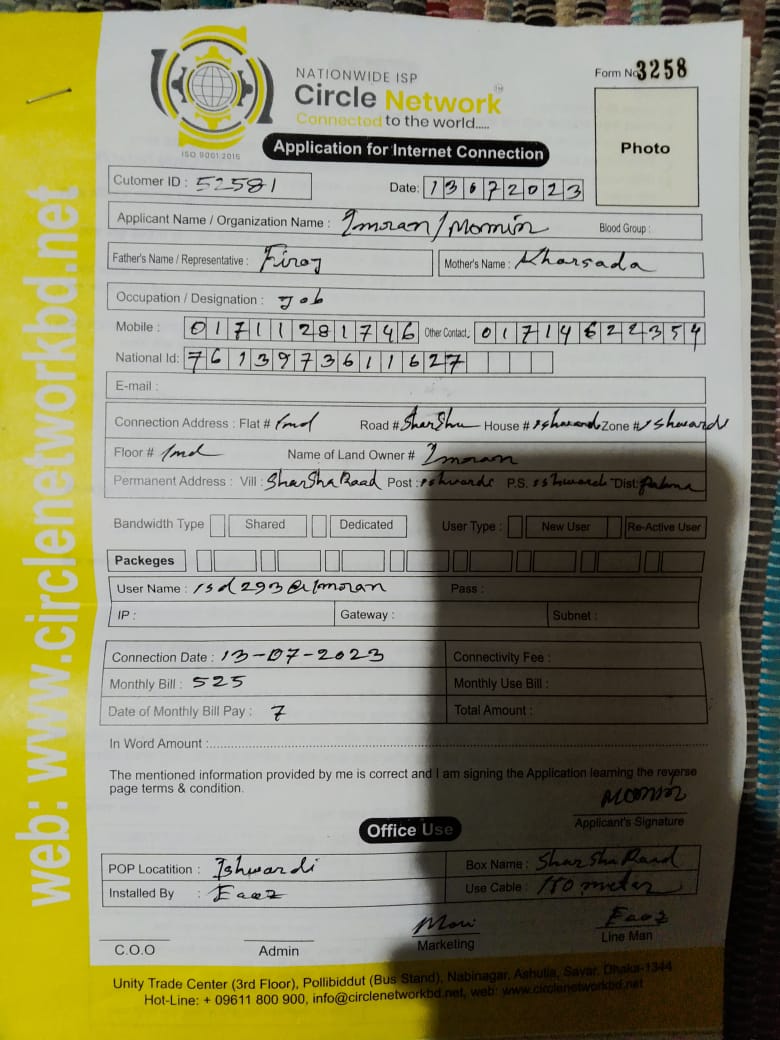 NATIONWIDE ISP
Circle Network
TM
Connected to the world.....
ISO 9001 2015
Form No 3258
Application for Internet Connection
Photo
Cutomer ID : 52581
Date: 13072023
Applicant Name / Organization Name : Imoran/Momin
Blood Group :
Father's Name / Representative : Firoj
Mother's Name : Kharsada
Occupation / Designation : Job
Mobile : 01711281746 Other Contact: 01714622354
National Id: 7613973611627
E-mail :
Connection Address : Flat # Road # House # Zone #
Floor # Name of Land Owner # Imoran
Permanent Address : Vill : SharSha Raad Post : P.S. Dist: Pabna
Bandwidth Type Shared Dedicated User Type : New User Re-Active User
Packeges
User Name : isd293@imoran Pass :
IP : Gateway : Subnet :
Connection Date : 13-07-2023 Connectivity Fee :
Monthly Bill : 525 Monthly Use Bill :
Date of Monthly Bill Pay : 7 Total Amount :
In Word Amount :
The mentioned information provided by me is correct and I am signing the Application learning the reverse
page terms & condition.
Momin
Applicant's Signature
Office Use
POP Locatition : Ishwardi Box Name : SharSha Raad
Installed By : Use Cable : 110 meter
C.O.O Admin Marketing Line Man
Unity Trade Center (3rd Floor), Pollibiddut (Bus Stand), Nabinagar, Ashulia, Savar, Dhaka-1344
Hot-Line: + 09611 800 900, info@circlenetworkbd.net, web: www.circlenetworkbd.net
web: www.circlenetworkbd.net